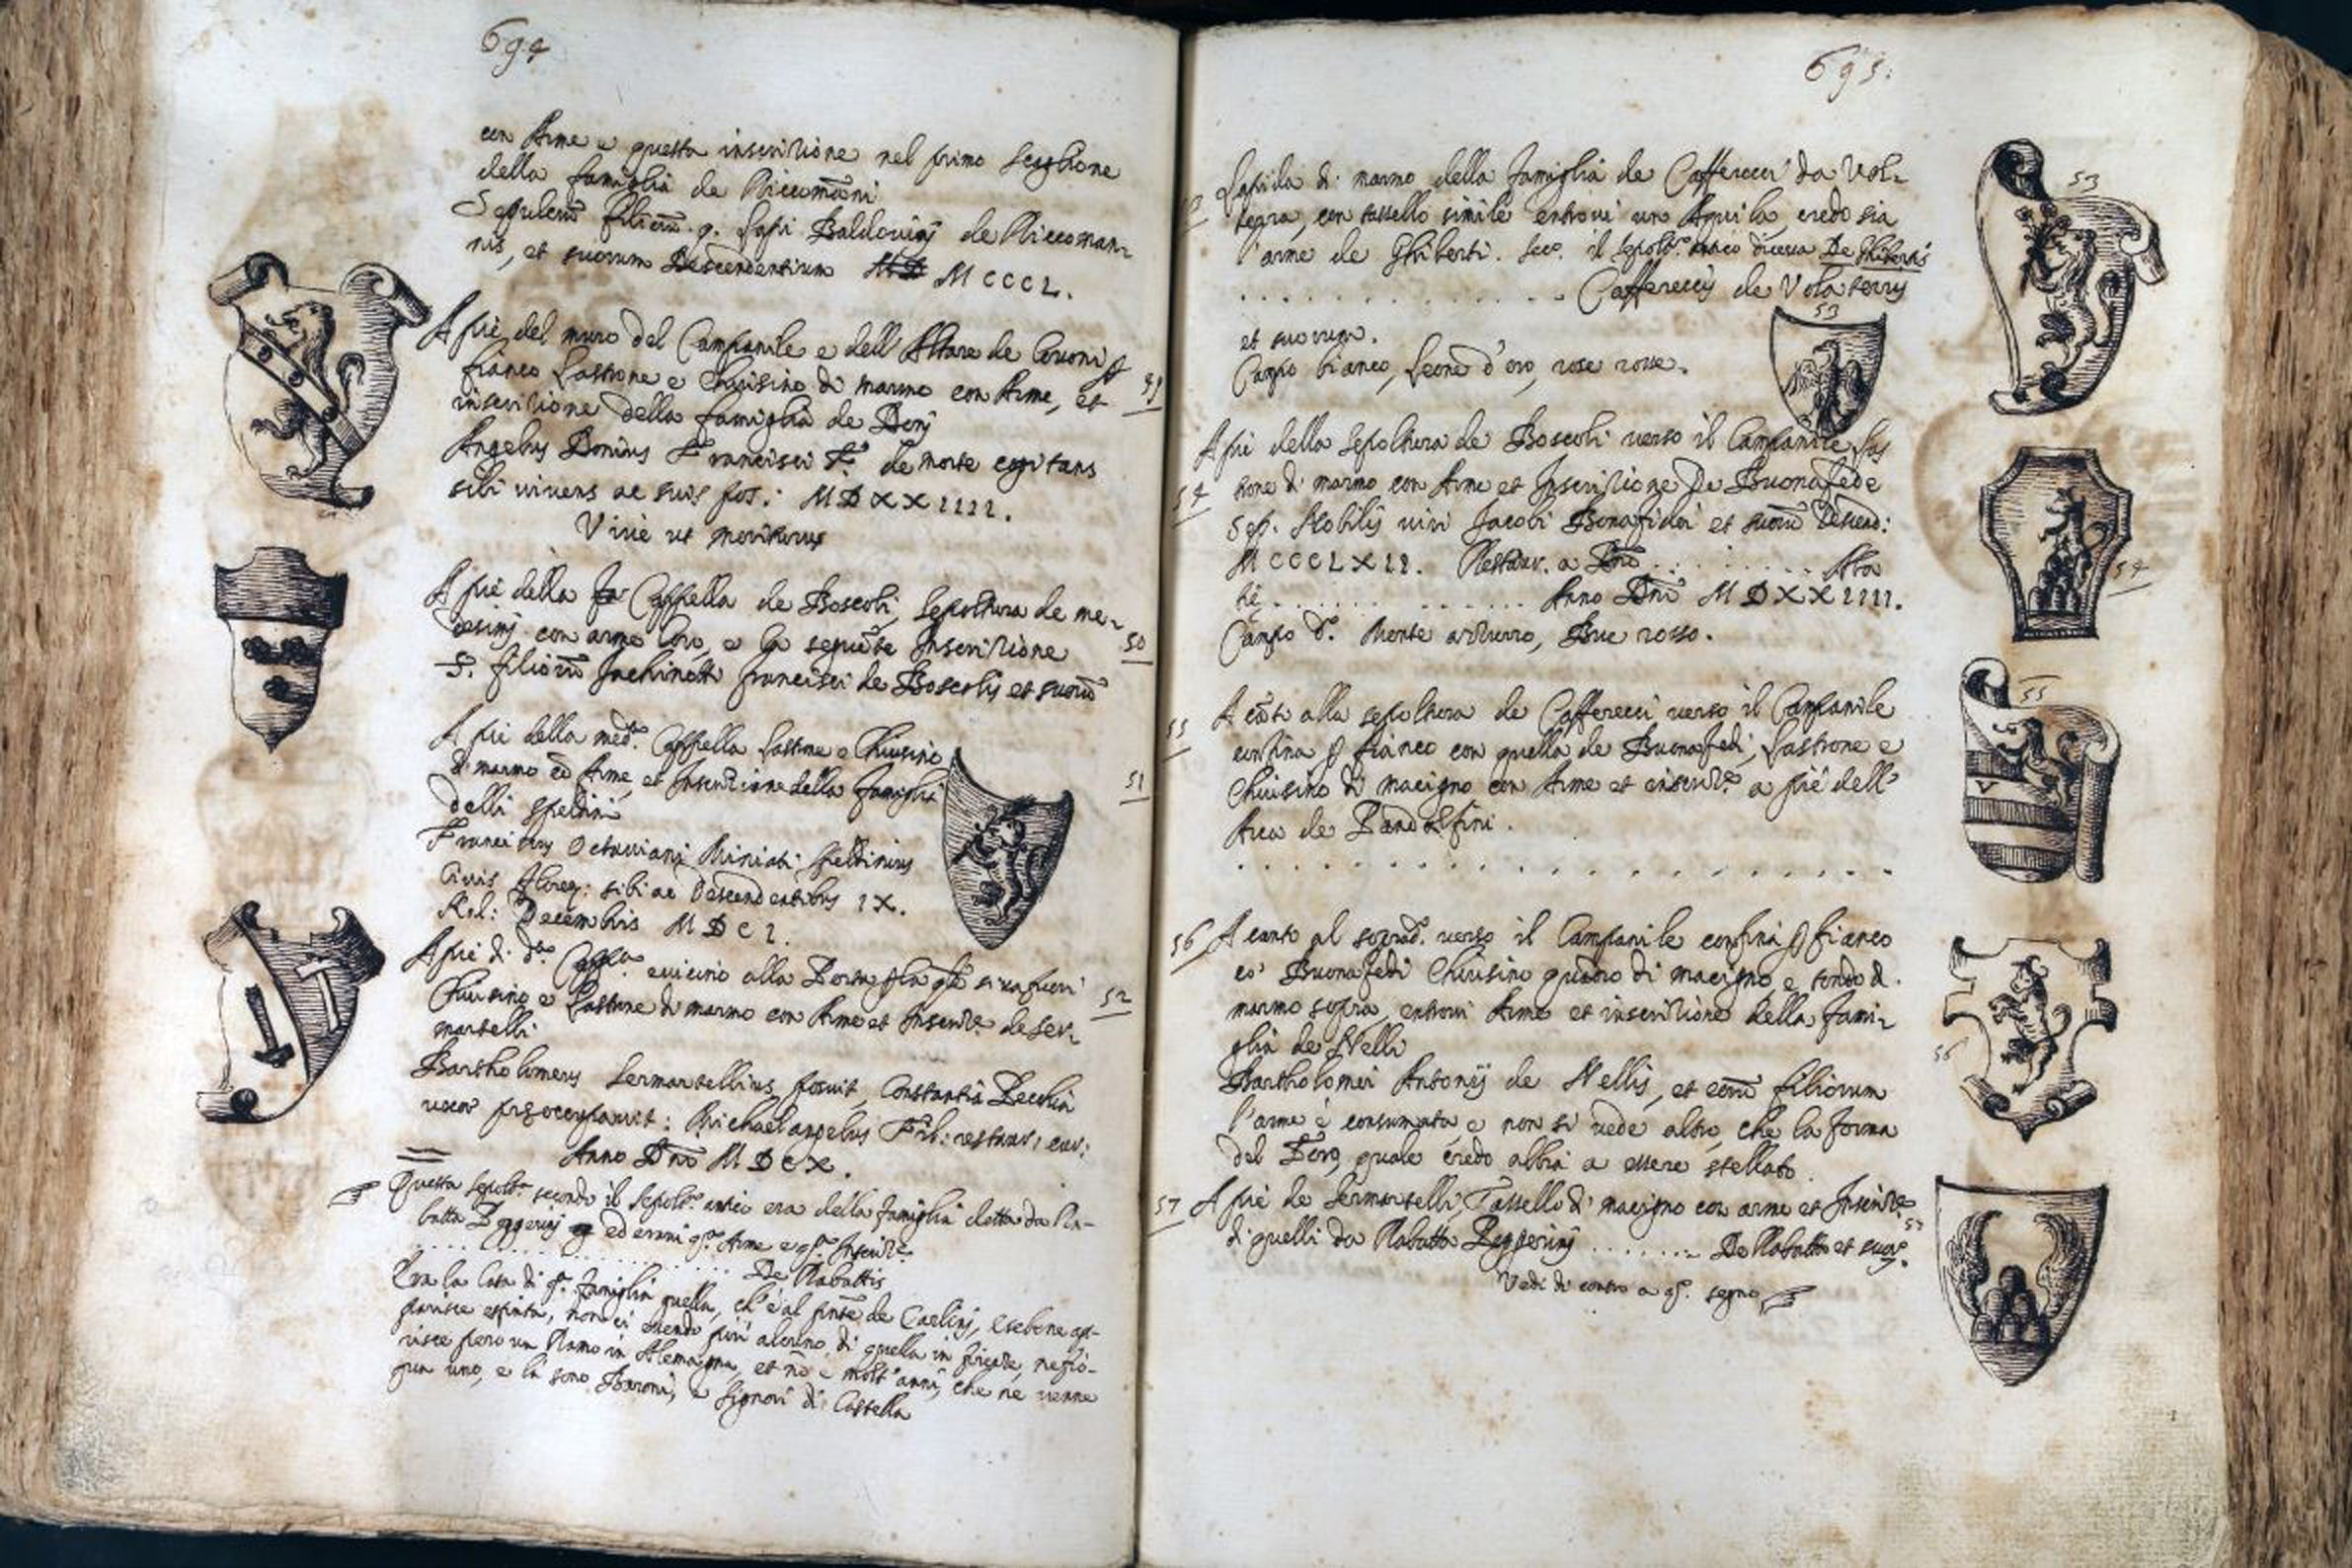 694
con Arme e questa inscrizione nel primo scaglione
della famiglia de Riccomãni
Sepulcrũ filiorũ q. Lapi Baldovinj de Riccoman-
nis, et suorum Descendentium MCCCL.
A piè del muro del Campanile e dell'Altare de Covoni
fianco Lastrone e Chiusino di marmo con Arme, et
49
inscrizione della famiglia de Donj
Angelus Donius Francisci F. de morte cogitans
sibi vivens ac suis pos: MDXXIIII.
Vive ut moriturus
A piè della Cappella de Boscoli, sepoltura de me-
desimj con arme loro, e la seguẽte Inscrizione
50
S. filiorũ Jachinotti Francisci de Boscolis et suorũ
A piè della med.ª Cappella Lastrone e Chiusino
di marmo cõ Arme, et Inscrizione della famiglia
51
delli Speldini
Franciscus Octaviani Miniati Speldinius
Civis Floren: sibi ac Descendentibus IX.
Kal: Decembris MDCI.
A piè di d.ª Capp.ª e vicino alla Porta si va fuori
Chiusino e Lastrone di marmo con Arme et Inscriz.e de Ser-
52
martelli
Bartholomeus Sermartellius posuit, Constantia
uxor preoccupavit: Michaelangelus Fil: restaur: cur:
Anno Dñi MDCX.
Questa sepolt.ª secondo il sepolt.º antico era della famiglia detta da Ra-
batta ed eravi q.ª Arme e q.ª Inscriz.e
. . . . . . . . . . De Rabattis
Era la Casa di q.ª famiglia quella, ch'è al Põte de e sebene ap-
parisce estinta, non ci essendo più alcuno di quella in Firẽze,
risce però un Ramo in Alemagna, et nõ è molt'anni, che ne venne
qua uno, e là sono Baroni, e Signori di Castella
695:
Lapida di marmo della famiglia de Caffarecci da Vol-
53
terra, con tassello simile entrovi un Aquila, credo sia
l'arme de Ghiberti. sec.º il sepolt.º antico diceva De Ghibertis
. . . . . . . . . . Caffereccij de Volaterris
53
et suorum.
Campo bianco, Leone d'oro, rose rosse.
A piè della sepoltura de Boscoli verso il Campanile Las
54
trone di marmo con Arme et Inscrizione De Buonafede
Sep. Nobilis viri Jacobi Bonafidei et suorũ Descend:
MCCCLXII. Restaur. a Dño . . . . . .
54
. . . . . . . . Anno Dñi MDXXIIII.
Campo d. Monte azzurro, Bue rosso.
55
A cãto alla sepoltura de Caffarecci verso il Campanile
55
confina p fianco con quella de Buonafedi, Lastrone e
Chiusino di macigno con Arme et inscriz.e a piè dell'
Arca de Pandolfini.
. . . . . . . . . . . . . . . .
56
A canto al soprad.º verso il Campanile confina p fianco
co' Buonafedi Chiusino quadro di macigno e tondo di
marmo sopra, entrovi Arme et inscrizione della fami-
56
glia de Nelli
Bartholomei Antonij de Nellis, et eorũ filiorum
l'arme è consumata e non si vede altro, che la forma
del Toro, quale credo abbia a essere stellato.
57
A piè de Sermartelli Tassello di macigno con arme et Inscriz.e
57
di quelli da Rabatta . . . . . . De Rabatta et suor.
Vedi di contro a q.º segno